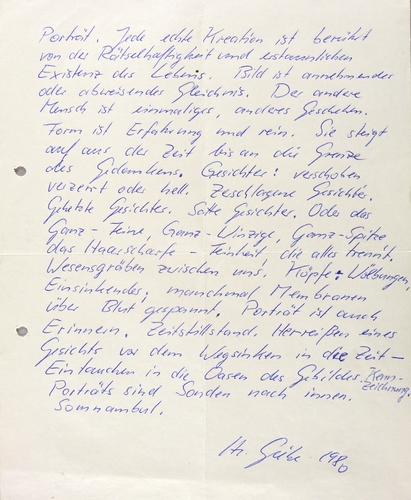 Porträt. Jede echte Kreation ist berührt
von der Rätselhaftigkeit und erstaunlichen
Existenz des Lebens. Bild ist annehmendes
oder abweisendes Gleichnis. Der andere
Mensch ist einmaliges, anderes Geschehen.
Form ist Erfahrung und rein. Sie steigt
auf aus der Zeit bis an die Grenze
des Gedankens. Gesichter: verschoben
verzerrt oder hell. Zerschlagene Gesichter.
Gehetzte Gesichter. Satte Gesichter. Oder das
Ganz-Feine, Ganz-Winzige, Ganz-Spitze
das Haarscharfe - Feinheit, die alles trennt.
Wesensgräben zwischen uns. Köpfe: Wölbungen,
Einsinkendes, manchmal Membranen
über Blut gespannt. Porträt ist auch
Erinnern. Zeitstillstand. Herreißen eines
Gesichts vor dem Wegsinken in die Zeit -
Eintauchen in die Oasen des Gebildes. Kenn-
zeichnung.
Porträts sind Sonden nach innen.
Somnambul.
1980